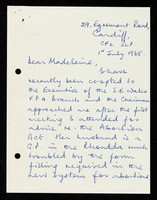 29, Egremont Road,
Cardiff,
CF2 5LP
1st July 1968
Dear Madeleine,
I have
recently been co-opted to
the Executive of the S.E. Wales
F.P.A branch and the Chairman
approached me after the first
meeting I attended for
advice re the Abortion
Act. Her husband is a
G.P. in the Rhondda much
troubled by the form
filling required in the
new system for abortions